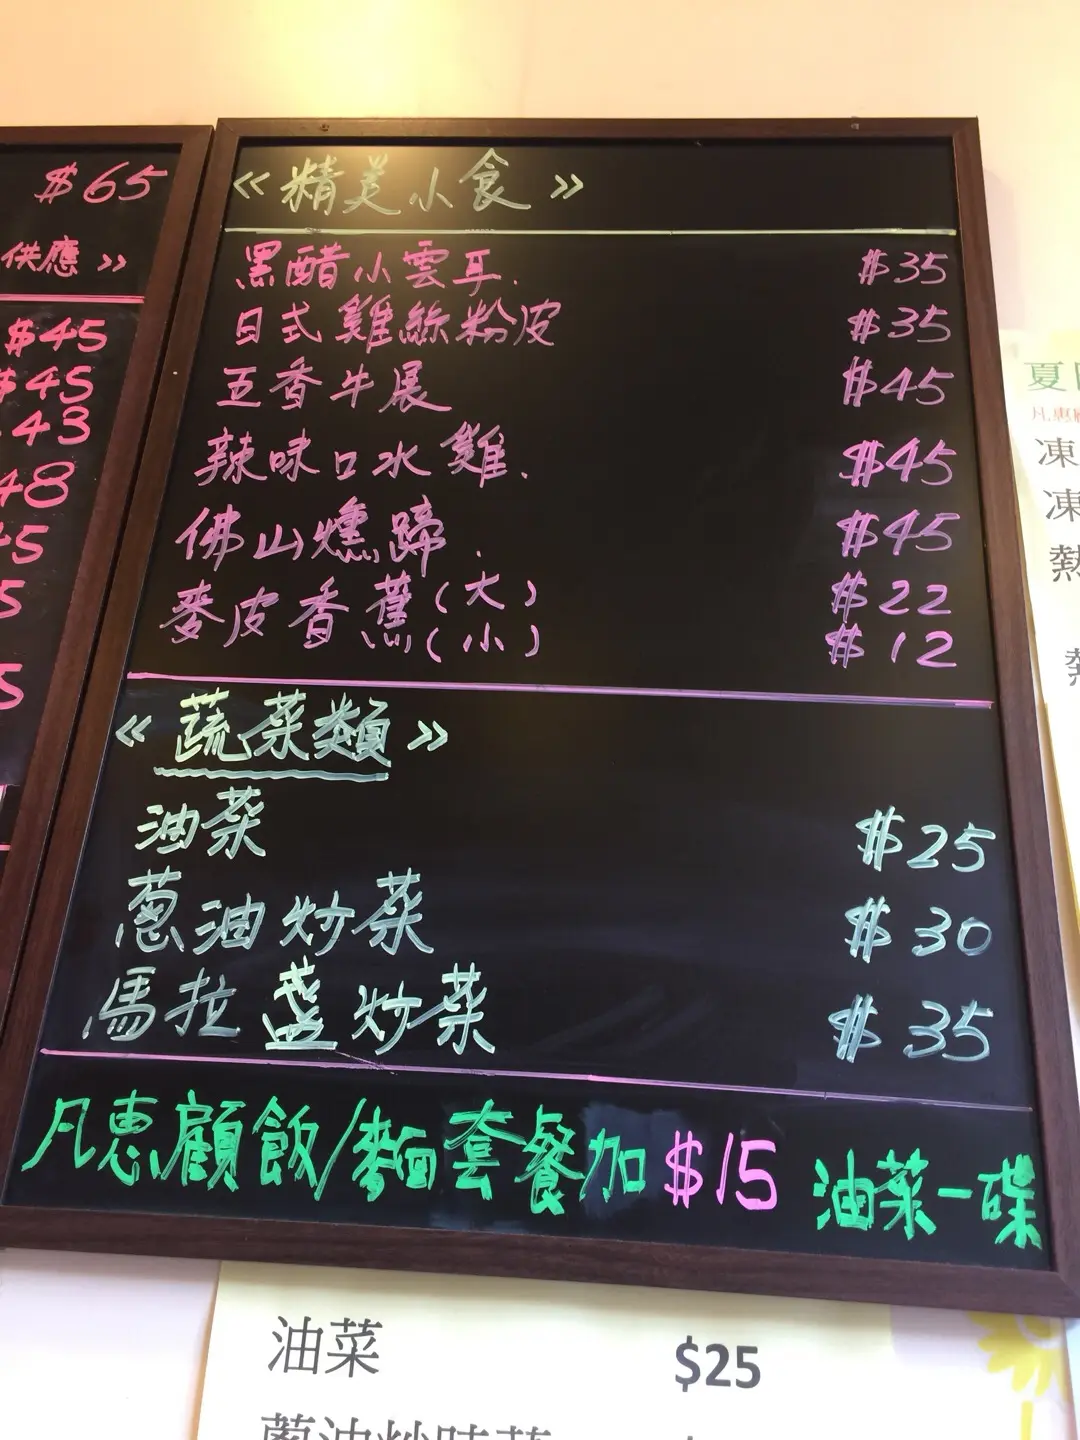 $65
供應 »
$45
$45
43
48
5
5
5
« 精美小食 »
黑醋小雲耳. $35
日式雞絲粉皮 $35
五香牛展 $45
辣味口水雞. $45
佛山燻蹄. $45
麥皮香蕉(大) $22
(小) $12
« 蔬菜類 »
油菜 $25
蔥油炒菜 $30
馬拉盞炒菜 $35
凡惠顧飯/麵套餐加$15 油菜一碟
油菜 $25
夏
凡惠
凍
凍
熱